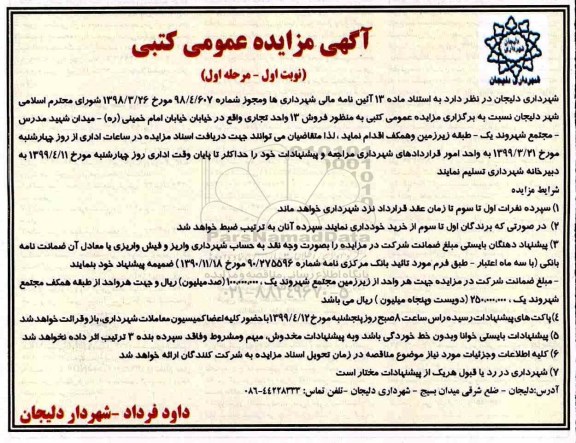 آگهی مزایده عمومی کتبی
(نوبت اول - مرحله اول)
دلیجان
شهرداری
شهرداری دلیجان
شهرداری دلیجان در نظر دارد به استناد ماده ۱۳ آئین نامه مالی شهرداری ها ومجوز شماره ۹۸/٤/۶۰۷ مورخ ۱۳۹۸/۳/۲۶ شورای محترم اسلامی
شهر دلیجان نسبت به برگزاری مزایده عمومی کتبی به منظور فروش ۱۳ واحد تجاری واقع در خیابان خیابان امام خمینی (ره) - میدان شهید مدرس
- مجتمع شهروند یک - طبقه زیرزمین وهمکف اقدام نماید ، لذا متقاضیان می توانند جهت دریافت اسناد مزایده در ساعات اداری از روز چهارشنبه
مورخ ۱۳۹۹/۳/۲۱ به واحد امور قراردادهای شهرداری مراجعه و پیشنهادات خود را حداکثر تا پایان وقت اداری روز چهارشنبه مورخ ۱۳۹۹/٤/۱۱ به
دبیرخانه شهرداری تسلیم نمایند
شرایط مزایده
۱) سپرده نفرات اول تا سوم تا زمان عقد قرارداد نزد شهرداری خواهد ماند
۲) در صورتی که برندگان اول تا سوم از خرید خودداری نمایند سپرده آنان به ترتیب ضبط خواهد شد
۳) پیشنهاد دهنگان بایستی مبلغ ضمانت شرکت در مزایده را بصورت وجه نقد به حساب شهرداری واریز و فیش واریزی یا معادل آن ضمانت نامه
بانکی (با سه ماه اعتبار - طبق فرم مورد تائید بانک مرکزی نامه شماره ۹۰/۲۷۵۵۹۶ مورخ ۱۳۹۰/۱۱/۱۸) ضمیمه پیشنهاد خود بنمایند
- مبلغ ضمانت شرکت در مزایده جهت هر واحد از زیرزمین مجتمع شهروند یک ، ۱۰۰,۰۰۰,۰۰۰ (صدمیلیون) ریال و جهت هرواحد از طبقه همکف مجتمع
شهروند یک ، ۲۵۰,۰۰۰,۰۰۰ (دویست وپنجاه میلیون) ریال می باشد
٤) پاکت های پیشنهادات رسیده راس ساعت ۸ صبح روز پنجشنبه مورخ ۱۳۹۹/٤/۱۲ با حضور کلیه اعضا کمیسیون معاملات شهرداری، باز و قرائت خواهد شد
۵) پیشنهادات بایستی خوانا وبدون خط خوردگی باشد وبه پیشنهادات مخدوش، مبهم ومشروط وفاقد سپرده بنده ۳ ترتیب اثر داده نخواهد شد
۶) کلیه اطلاعات وجزئیات مورد نیاز موضوع مناقصه در زمان تحویل اسناد مزایده به شرکت کنندگان ارائه خواهد شد
۷) شهرداری در رد یا قبول هریک از پیشنهادات مختار است
آدرس:دلیجان - ضلع شرقی میدان بسیج - شهرداری دلیجان -تلفن تماس: ۴۴۲۲۸۳۳۳-۰۸۶
داود فرداد -شهردار دلیجان
ParsNamadData
پایگاه اطلاع رسانی مناقصه و مزایده